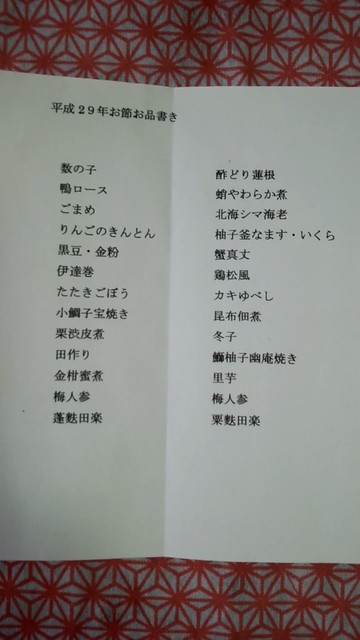 平成２９年お節お品書き
数の子
鴨ロース
ごまめ
りんごのきんとん
黒豆・金粉
伊達巻
たたきごぼう
小鯛子宝焼き
栗渋皮煮
田作り
金柑蜜煮
梅人参
蓬麩田楽
酢どり蓮根
蛸やわらか煮
北海シマ海老
柚子釜なます・いくら
蟹真丈
鶏松風
カキゆべし
昆布佃煮
冬子
鰤柚子幽庵焼き
里芋
梅人参
粟麩田楽